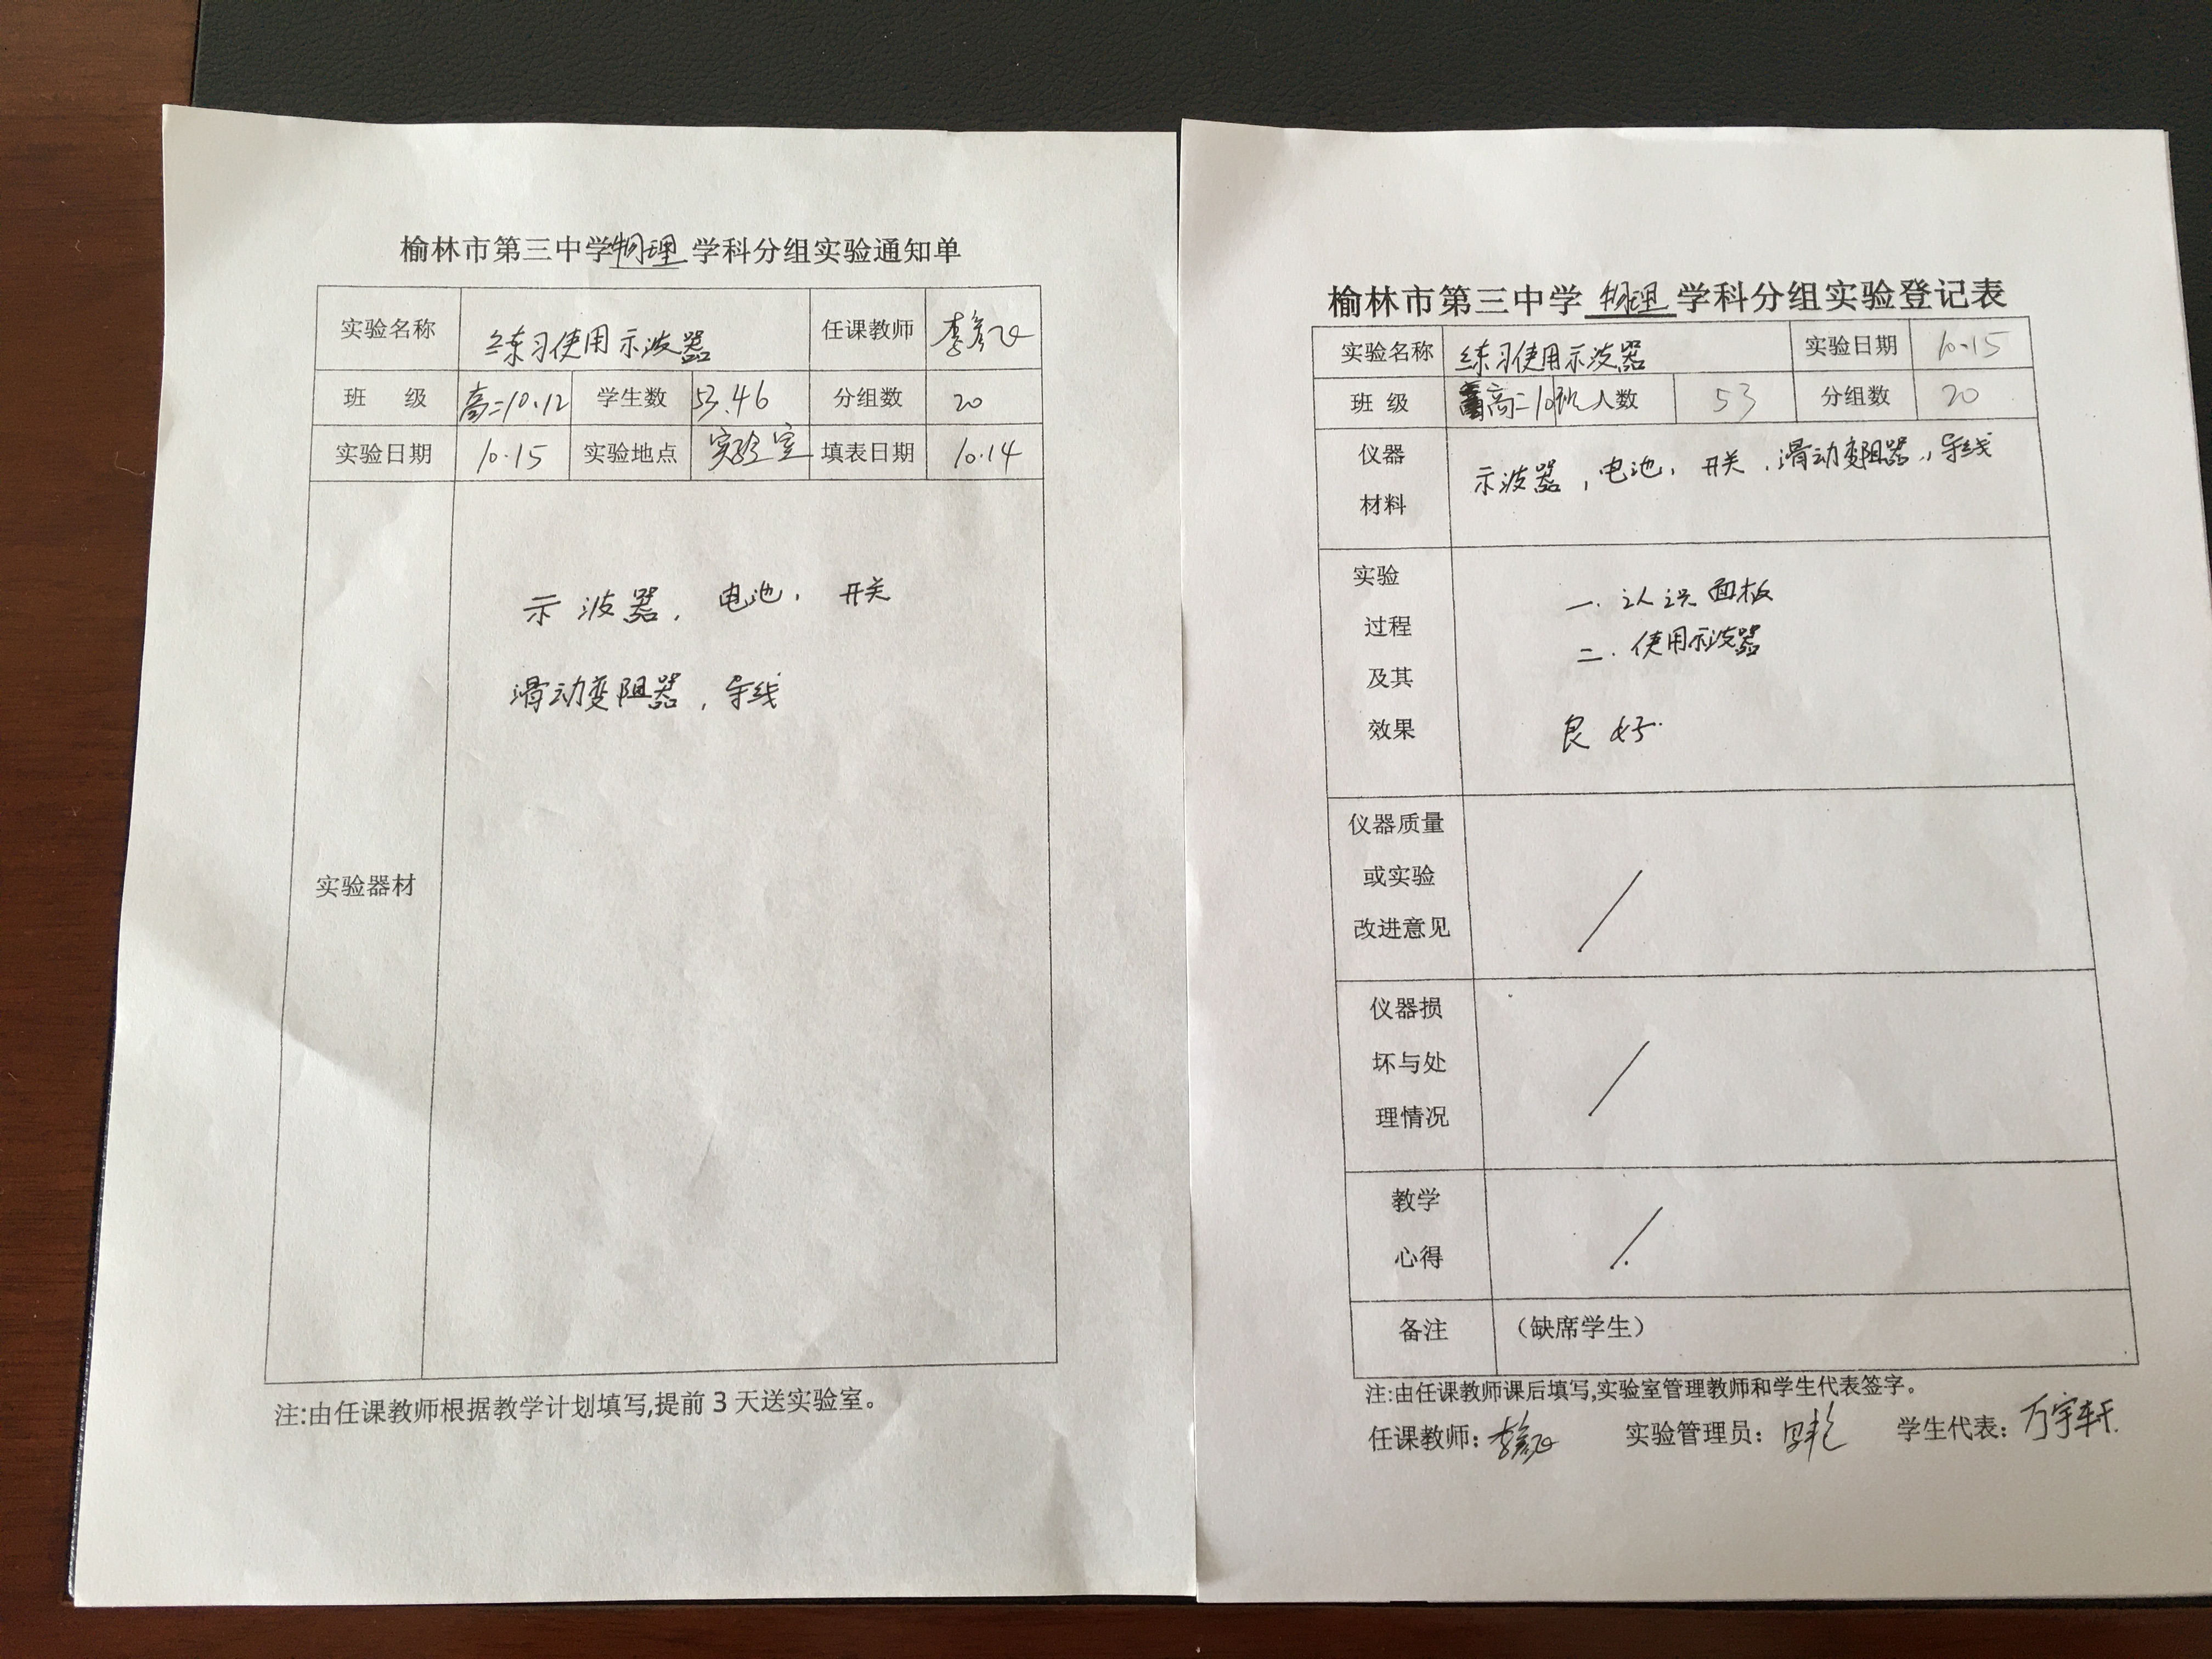 榆林市第三中学物理学科分组实验通知单
实验名称 练习使用示波器 任课教师 李彦飞
班 级 高二10.12 学生数 53.46 分组数 20
实验日期 10.15 实验地点 实验室 填表日期 10.14
实验器材
示波器，电池，开关
滑动变阻器，导线
注:由任课教师根据教学计划填写,提前3天送实验室。
榆林市第三中学物理学科分组实验登记表
实验名称 练习使用示波器 实验日期 10.15
班 级 高二10班 人数 53 分组数 20
仪器
材料
示波器，电池，开关，滑动变阻器，导线
实验
过程
及其
效果
一.认识面板
二.使用示波器
良好.
仪器质量
或实验
改进意见
仪器损
坏与处
理情况
教学
心得
备注 （缺席学生）
注:由任课教师课后填写,实验室管理教师和学生代表签字。
任课教师: 李彦飞 实验管理员: 学生代表: 万宇轩